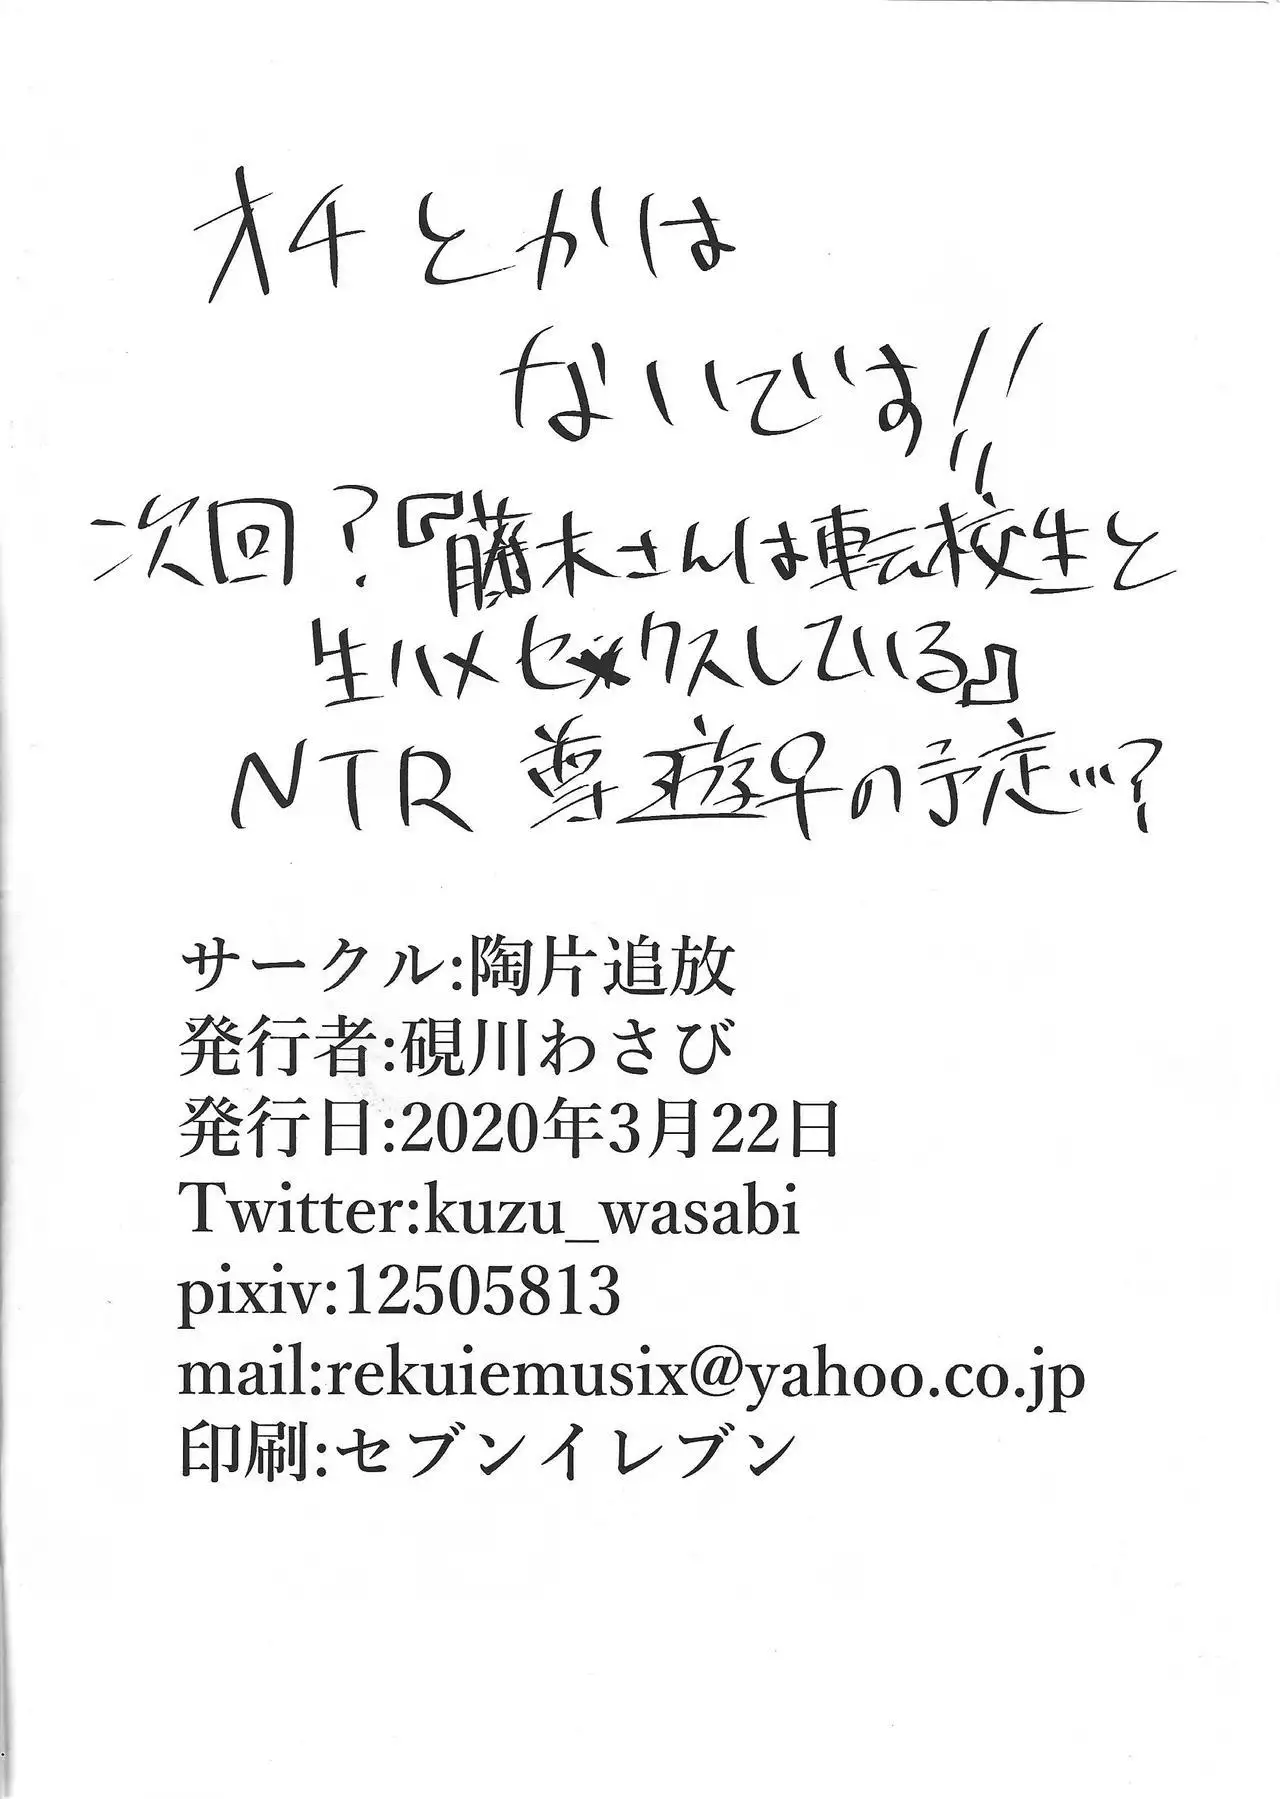 オチとかは
ないです!!
次回?『藤木さんは転校生と
生ハメセックスしている』
NTR 尊遊♀の予定…?
サークル:陶片追放
発行者:硯川わさび
発行日:2020年3月22日
Twitter:kuzu_wasabi
pixiv:12505813
mail:rekuiemusix@yahoo.co.jp
印刷:セブンイレブン